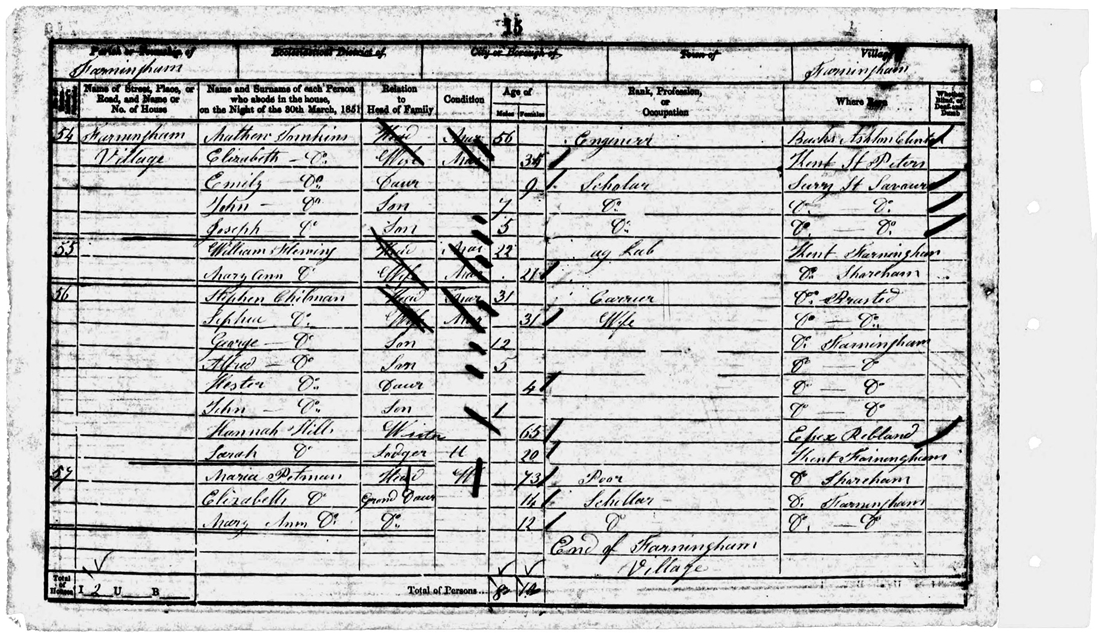 15
Parish or Township of Ecclesiastical District of City or Borough of Town of Village of
Farningham Farningham
Name of Street, Place, or Road, and Name or No. of House Name and Surname of each Person who abode in the house, on the Night of the 30th March, 1851 Relation to Head of Family Condition Age of Males Females Rank, Profession, or Occupation Where Born Whether Blind, or Deaf and Dumb
54 Farningham Mathew Tomkins Head Mar 56 Engineer Bucks Ashton
Village Elizabeth — Do. Wife Mar Kent St Peters
Emily Do. Daur 9 Scholar Surry St Savours
John — Do. Son 7 Do. Do. — Do.
Joseph Do. Son 5 Do. Do. — Do.
55 William Fleming Head Mar 22 ag Lab Kent Farningham
Mary Ann Do Wife Mar 21 Do. Shoreham
56 Stephen Chilman Head Mar 31 Carrier Do. Brasted
Do. Wife Mar 31 Wife Do — Do.
George — Do Son 12 Do. Farningham
Alfred — Do Son 5 Do — Do
Hester Do. Daur 4 Do — Do
John — Do. Son 1 Do — Do
Hannah Hills 65 Essex
Sarah Do Lodger U 20 Kent Farningham
57 Maria Petman Head W 73 Poor Do Shoreham
Elizabeth Do Grand Daur 14 Schollar Do. Farningham
Mary Ann Do. Do. 12 Do Do. — Do
End of Farningham
Village
Total of Houses I 2 U B Total of Persons 8